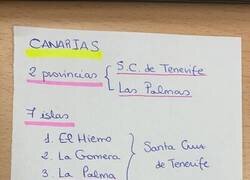 CANARIAS
2 provincias { S.C. de Tenerife
Las Palmas
7 islas
1. El Hierro
2. La Gomera
3. La Palma
} Santa Cruz
de Tenerife